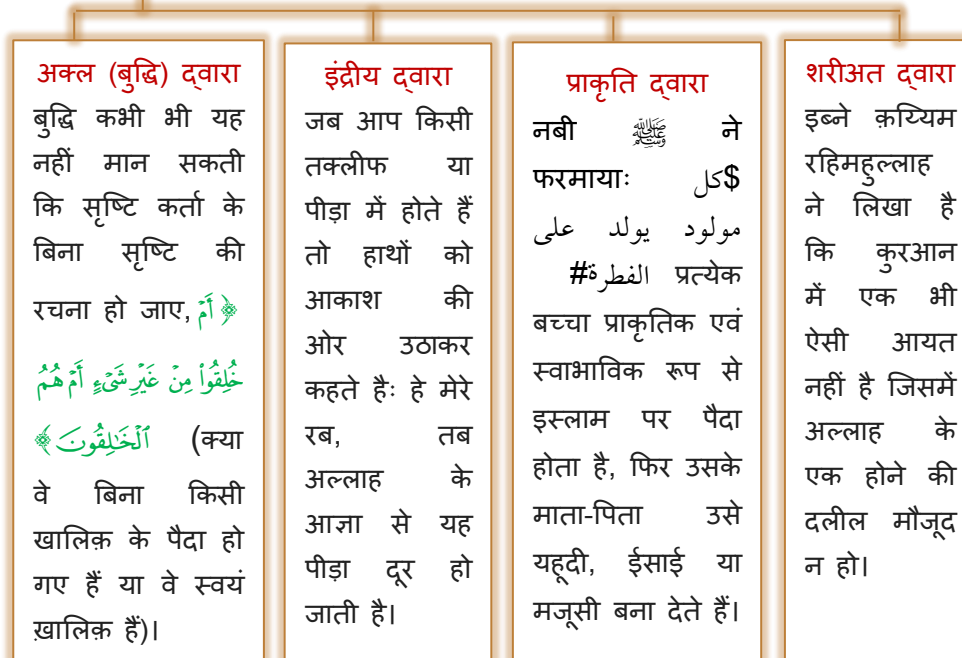 अक्ल (बुद्धि) द्वारा
बुद्धि कभी भी यह
नहीं मान सकती
कि सृष्टि कर्ता के
बिना सृष्टि की
रचना हो जाए, ﴿ أَمۡ
خُلِقُواْ مِنۡ غَيۡرِ شَيۡءٍ أَمۡ هُمُ
ٱلۡخَٰلِقُونَ ﴾ (क्या
वे बिना किसी
खालिक़ के पैदा हो
गए हैं या वे स्वयं
ख़ालिक़ हैं)।
इंद्रीय द्वारा
जब आप किसी
तक्लीफ या
पीड़ा में होते हैं
तो हाथों को
आकाश की
ओर उठाकर
कहते हैः हे मेरे
रब, तब
अल्लाह के
आज्ञा से यह
पीड़ा दूर हो
जाती है।
प्राकृति द्वारा
नबी ﷺ ने
फरमायाः $كل
مولود يولد على
الفطرة# प्रत्येक
बच्चा प्राकृतिक एवं
स्वाभाविक रूप से
इस्लाम पर पैदा
होता है, फिर उसके
माता-पिता उसे
यहूदी, ईसाई या
मजूसी बना देते हैं।
शरीअत द्वारा
इब्ने क़य्यिम
रहिमहुल्लाह
ने लिखा है
कि कुरआन
में एक भी
ऐसी आयत
नहीं है जिसमें
अल्लाह के
एक होने की
दलील मौजूद
न हो।